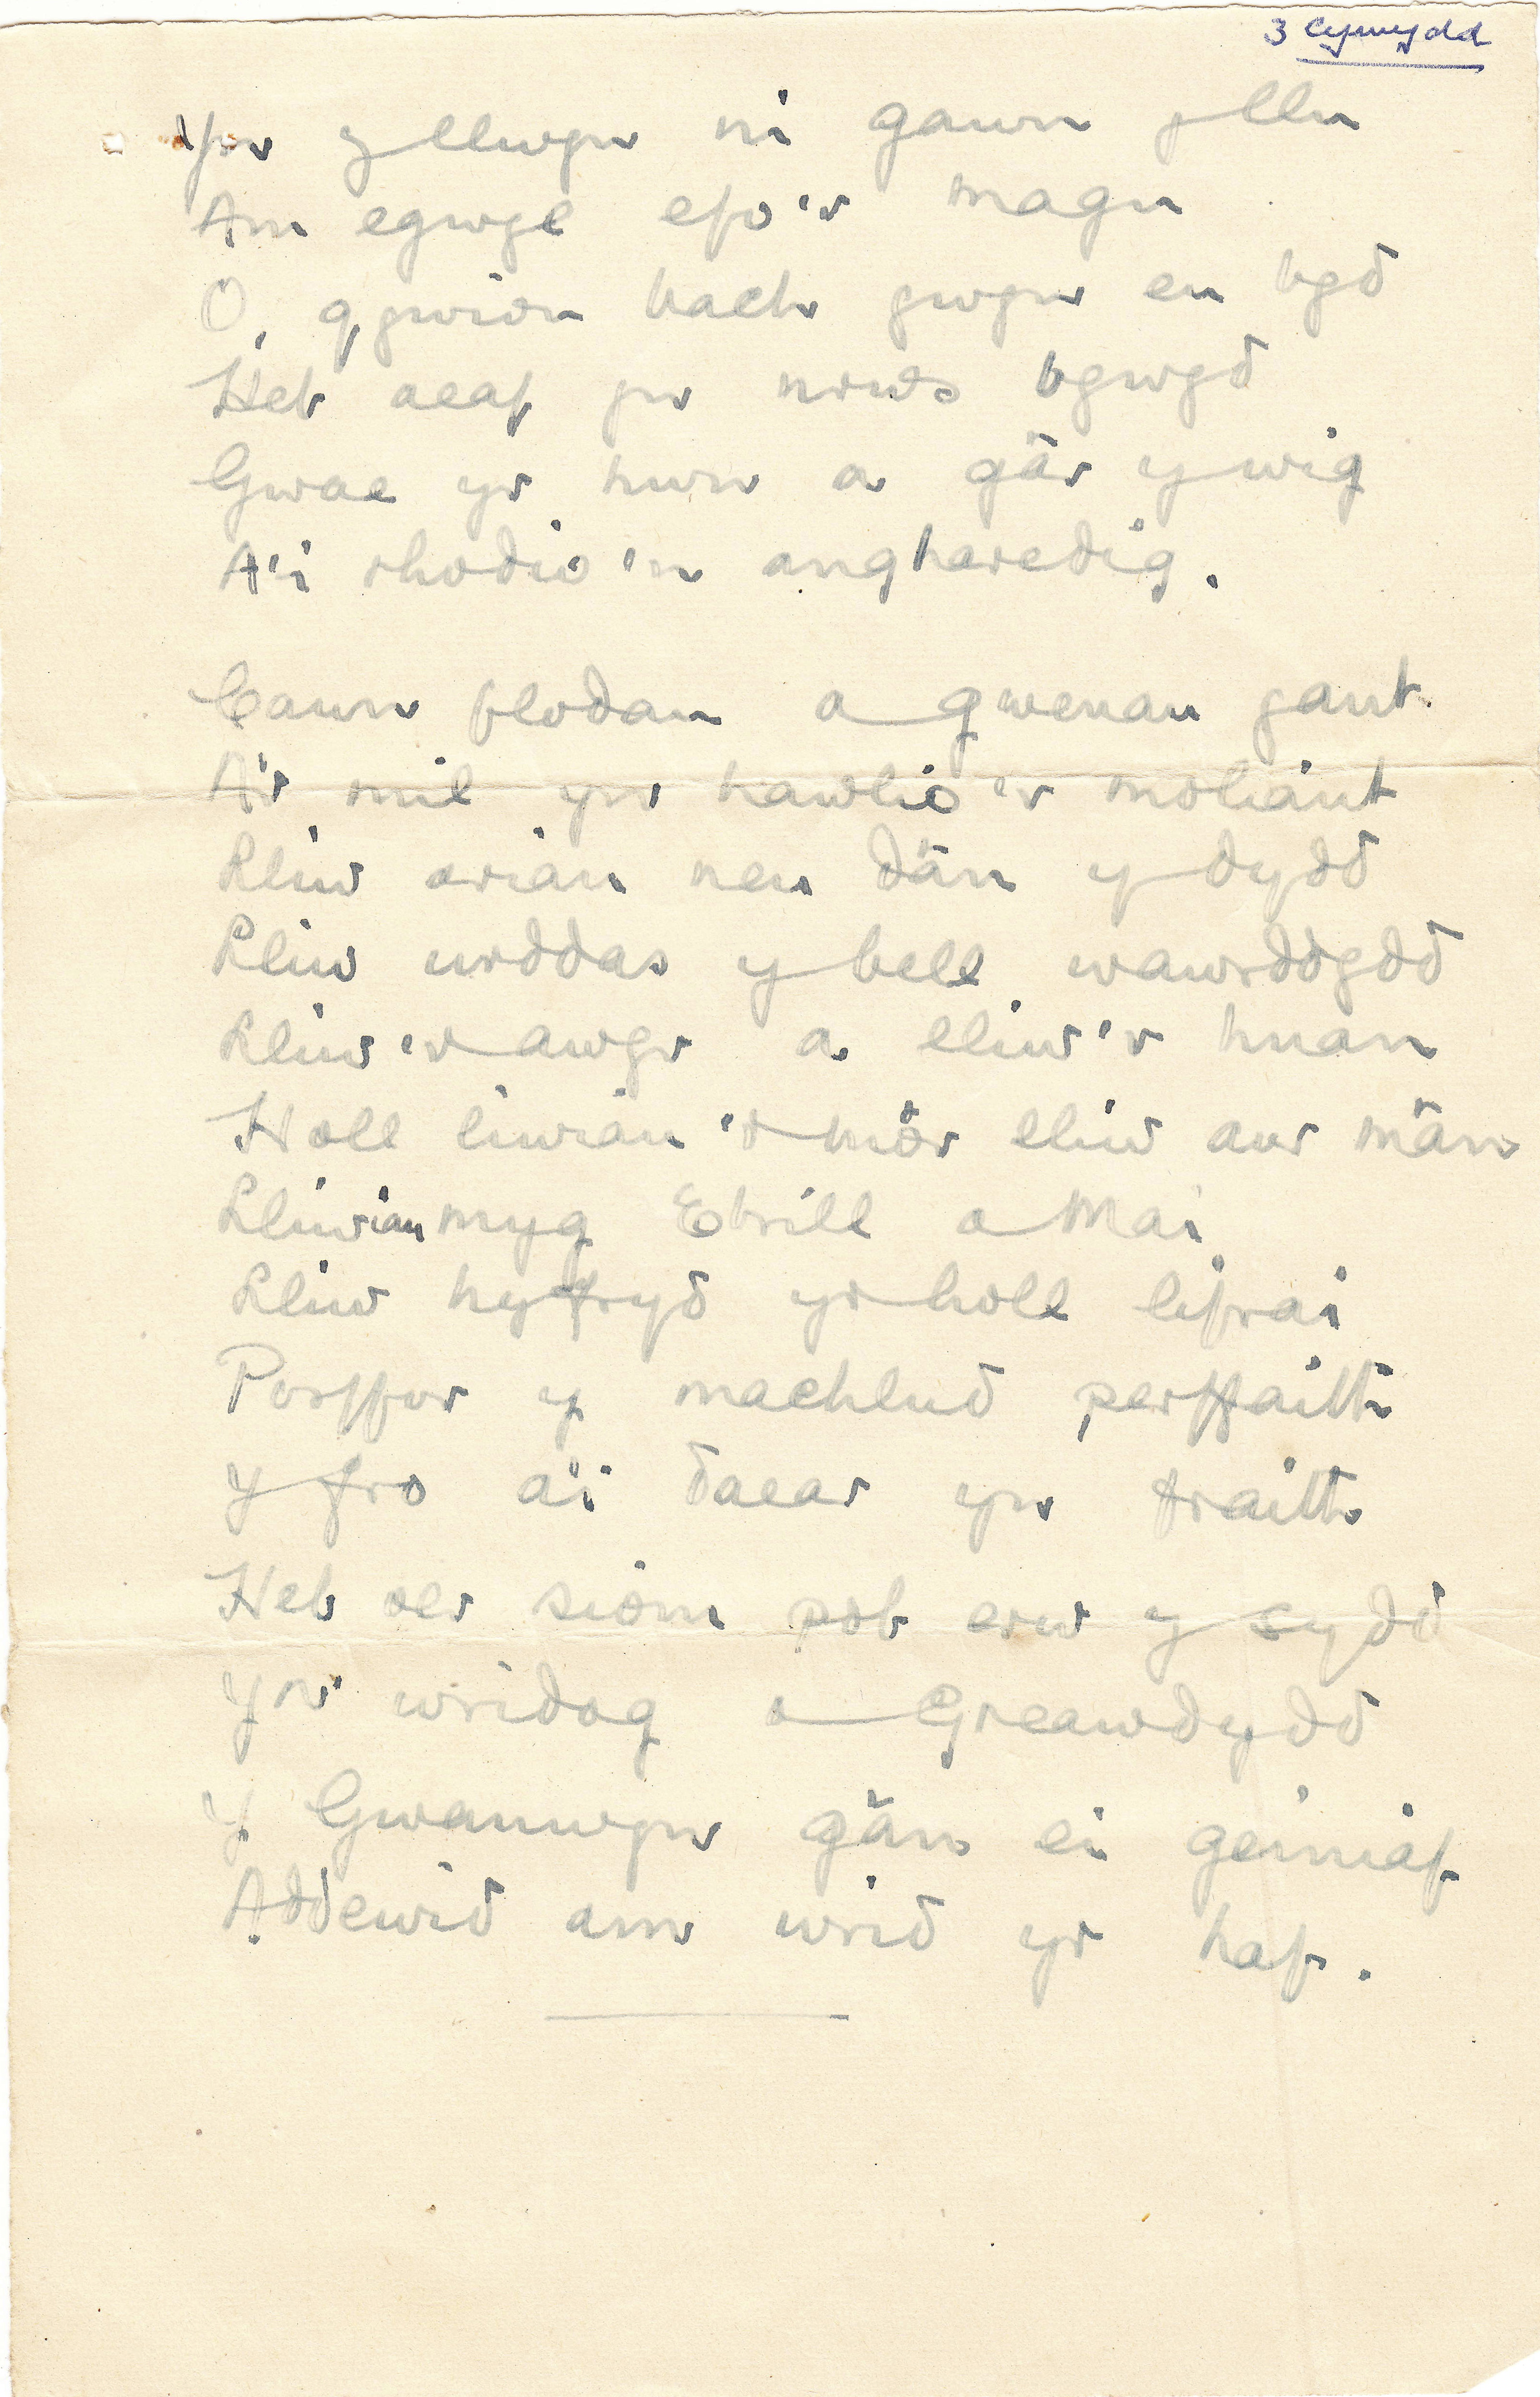 3 Cywydd
Yn y llwyn ni gawn y llu
Am egwyl efo'r magu
O, gywion bach gwyn eu byd
Heb aeaf yn nrws bywyd
Gwae yr hwn a gâr y wig
A'i rhodio'n angharedig.
Cawn flodau a gwenau gant.
A'r mil yn hawlio'r moliant
Lliw arian neu dân y dydd
Lliw urddas y bell wawrddydd
Lliw'r awyr a lliw'r huan
Holl liwiau'r môr lliw aur mân
Lliwiau myg Ebrill a Mai
Lliw hyfryd yr holl lifrai
Porffor y machlud perffaith
Y fro a'i daear yn fraith
Heb oer siom pob erw y sydd
Yn wridog o Greawdydd
Y Gwanwyn gân ei geiniaf
Addewid am wrid yr haf.